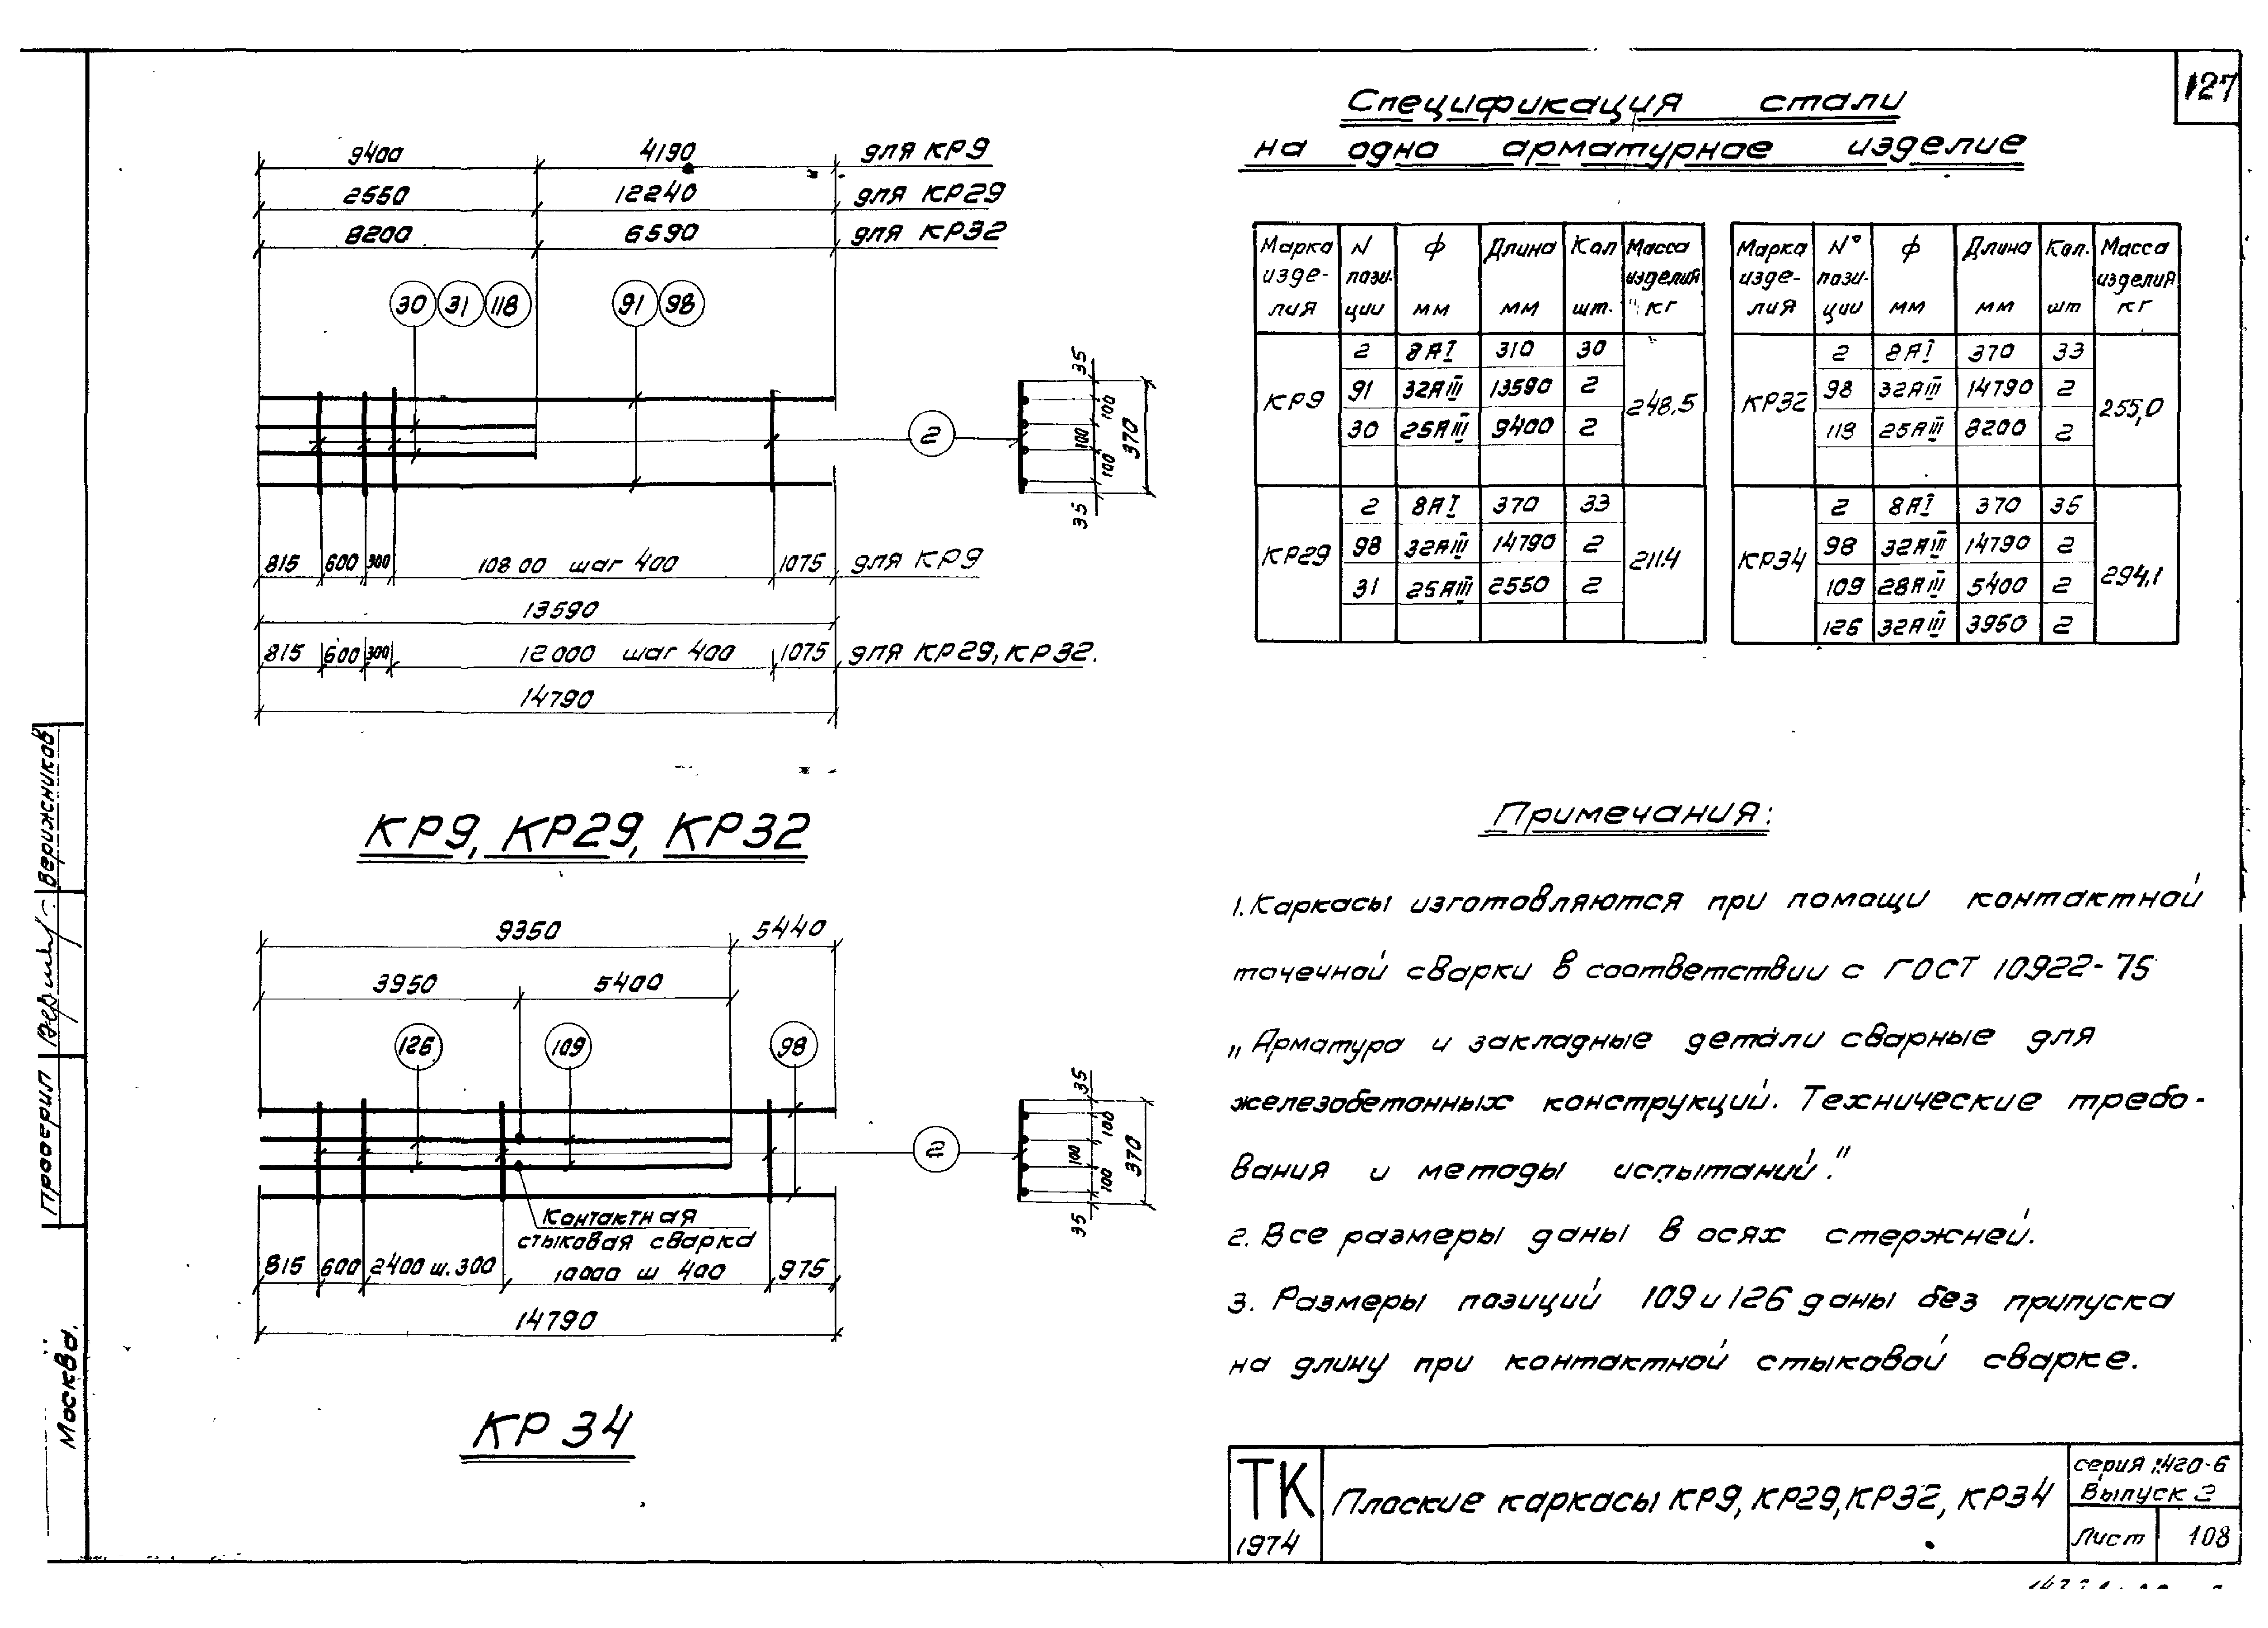 127
Спецификация стали
на одно арматурное изделие
9400 4190 для КР9
2550 12240 для КР29
8200 6590 для КР32
30 31 118 91 98
2
35 100 100 100 35 370
815 600 300 10800 шаг 400 1075 для КР9
13590
815 600 300 12000 шаг 400 1075 для КР29, КР32.
14790
КР9, КР29, КР32
Марка изде- лия N пози- ции ф мм Длина мм Кол шт. Масса изделия кг
КР9 2 8АI 310 30 248,5
91 32АIII 13590 2
30 25АIII 9400 2
КР29 2 8АI 370 33 211.4
98 32АIII 14790 2
31 25АIII 2550 2
Марка изде- лия N° пози- ции ф мм Длина мм Кол. шт Масса изделия кг
КР32 2 8АI 370 33 255,0
98 32АIII 14790 2
118 25АIII 8200 2
КР34 2 8АI 370 35 294,1
98 32АIII 14790 2
109 28АIII 5400 2
126 32АIII 3950 2
9350 5440
3950 5400
126 109 98
2
35 100 100 100 35 370
Контактная
стыковая сварка
815 600 2400 ш. 300 10000 ш 400 975
14790
КР 34
Примечания:
1. Каркасы изготовляются при помощи контактной
точечной сварки в соответствии с ГОСТ 10922-75
„Арматура и закладные детали сварные для
железобетонных конструкций. Технические требо-
вания и методы испытаний."
2. Все размеры даны в осях стержней.
3. Размеры позиций 109 и 126 даны без припуска
на длину при контактной стыковой сварке.
Проверил Верижников
Москва.
ТК
1974
Плоские каркасы КР9, КР29, КР32, КР34
серия 1.420-6
Выпуск 3
Лист 108